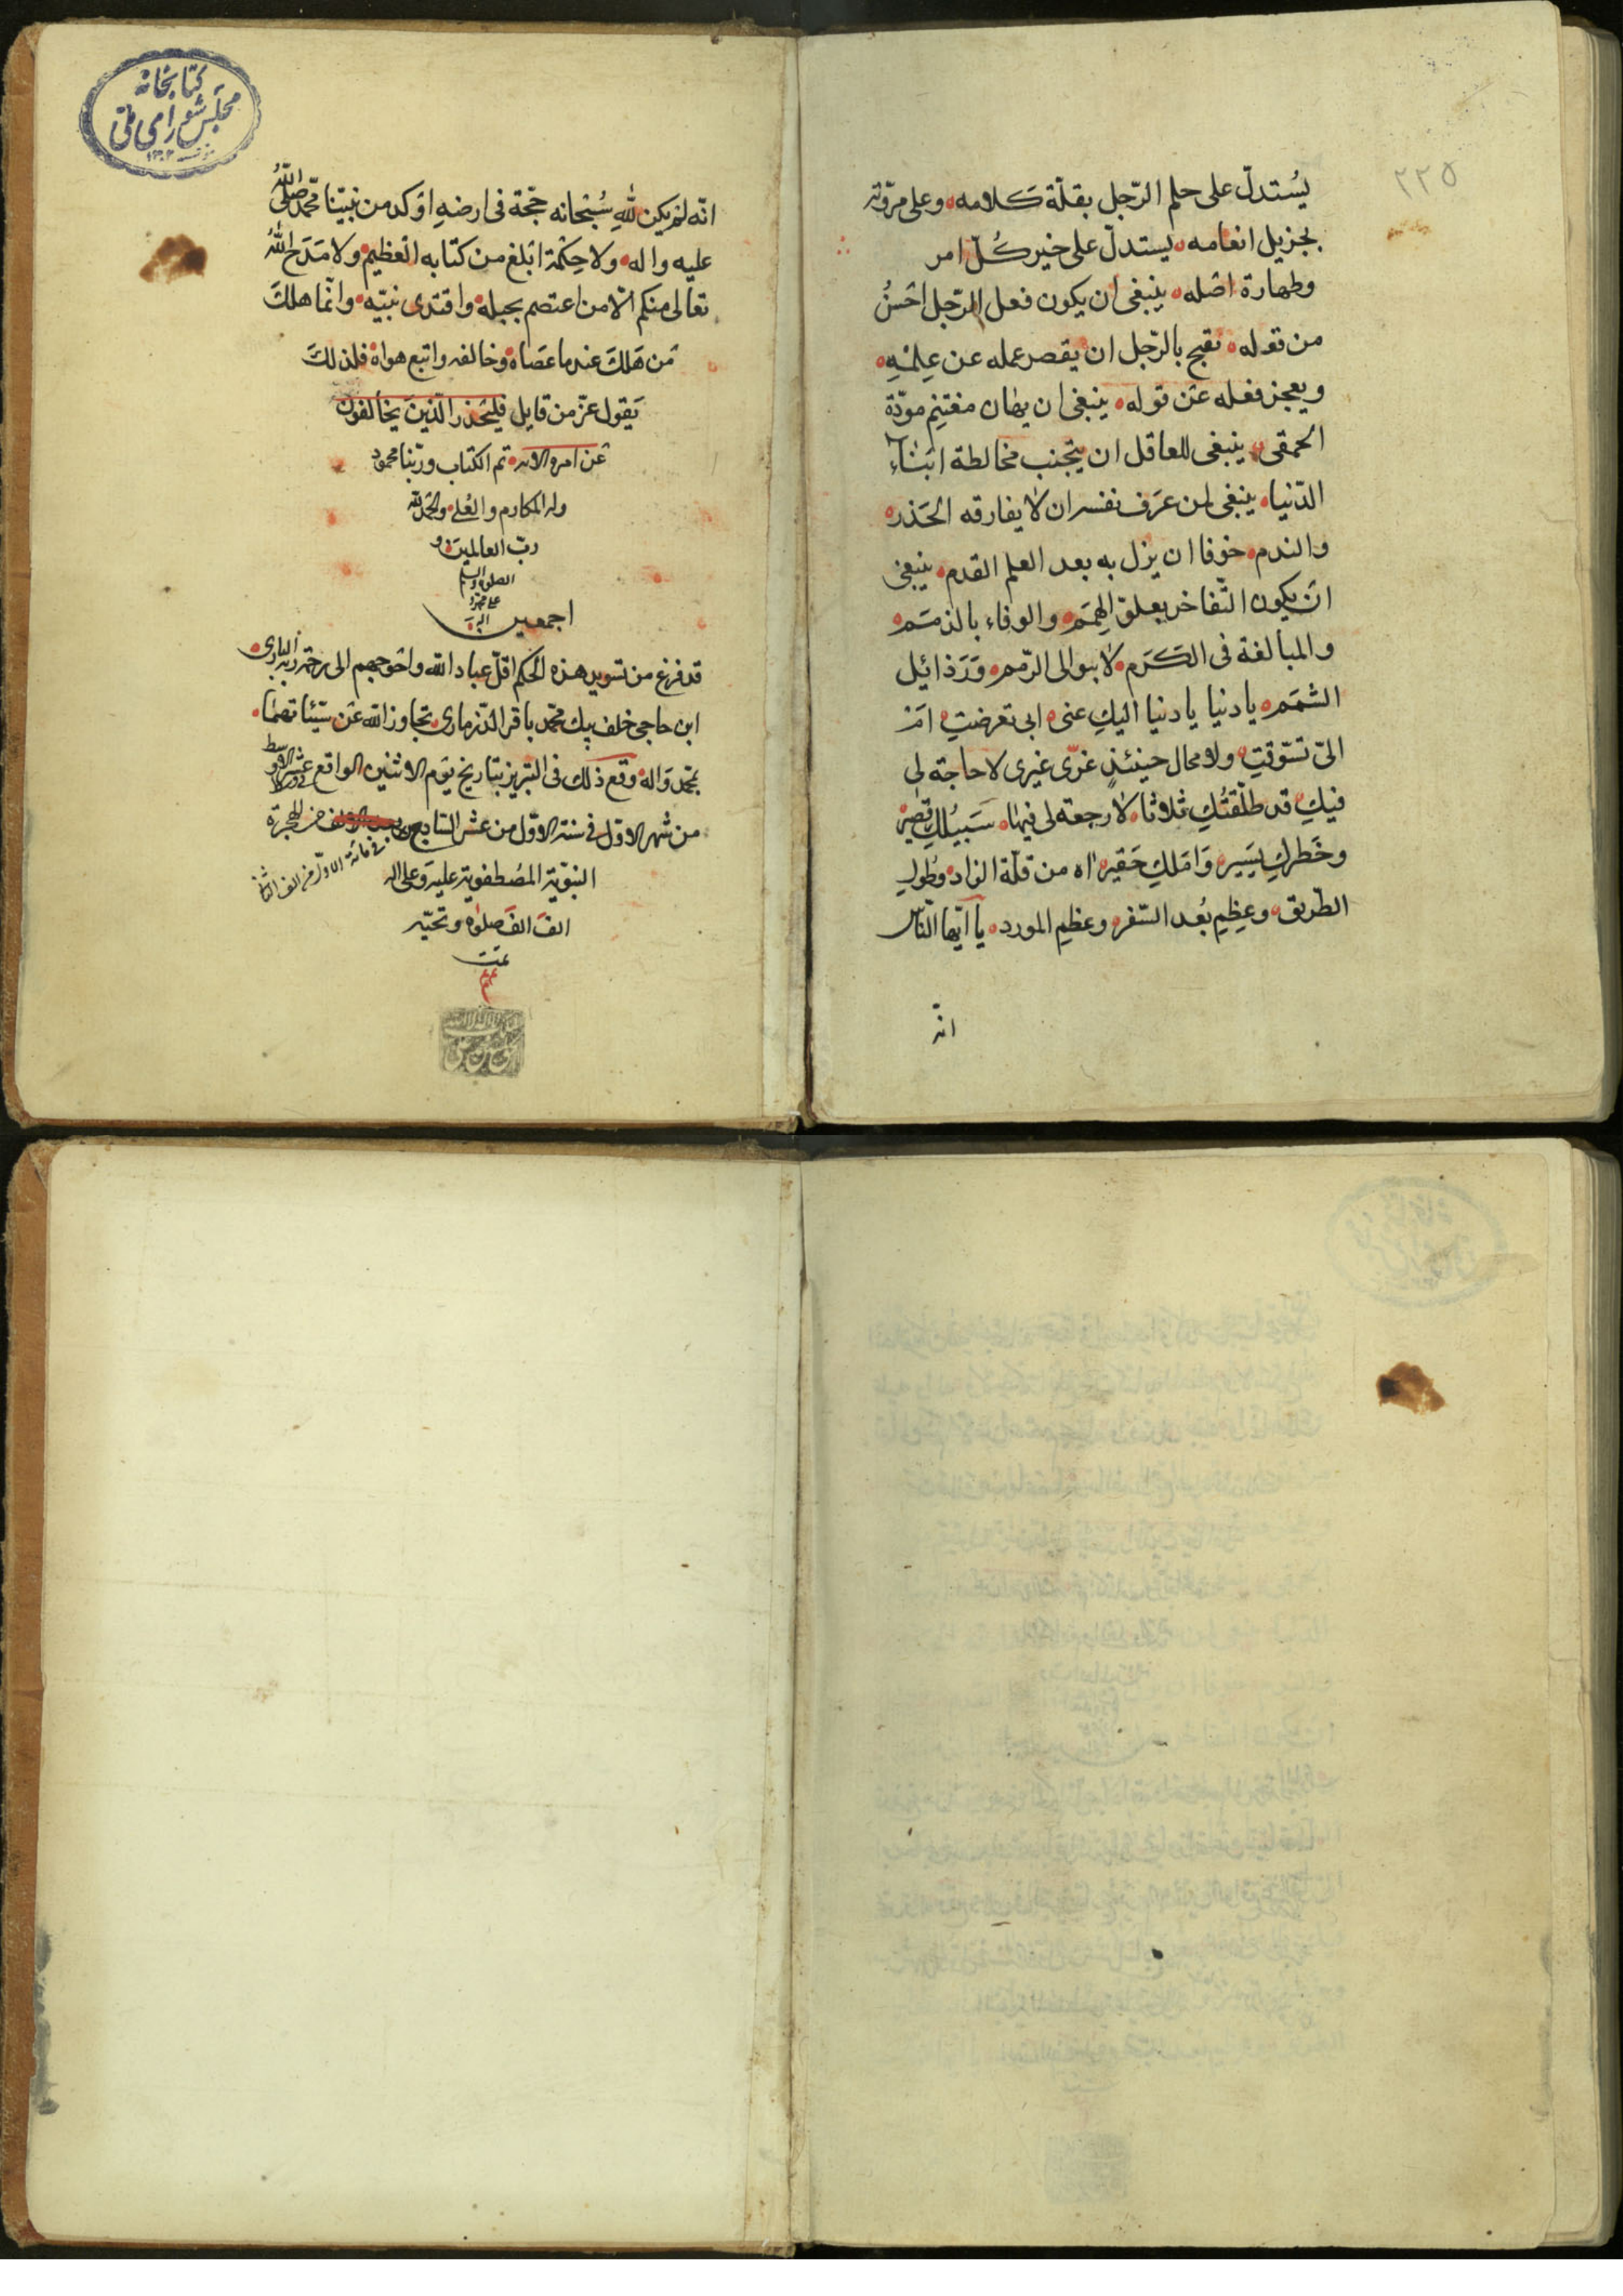 ٢٢٥
يُستدلّ على حلم الرّجل بقلّة كلامه، وعلى مروّته
بجزيل انعامه، يستدلّ على خير كُلّ امر
وطهارة اصله، ينبغى ان يكون فعل الرّجل احسَنُ
من قوله، تقبح بالرّجل ان يقصر عمله عن عِلمْهِ،
ويعجز فعله عن قوله، ينبغى ان يهان مغتنِم مودّة
الحمقى، ينبغى للعاقل ان يتجنب مخالطة ابْنَاء
الدّنيا، ينبغى لمن عَرَف نفسه ان لا يفارقه الحَذر،
والندم، خوفا ان يزل به بعد العلم القدم، ينبغى
انْ يكون التّفاخر بعلوّ الهِمَم، والوفاء بالذمَم،
والمبالغة فى الكَرَم، لا ببوالى الرّمم، وَرَذائيل
الشمَم، يا دنيا يا دنيا اليكِ عنى، ابى تعرضتِ، امْ
الىّ تشوّقتِ، ولا محال حينئذٍ غرّى غيرى لا حاجة لى
فيكِ، قد طلّقتُكِ ثلاثا، لا رجعة لى فيها، سَبيلُكِ قصير،
وخَطركِ يَسير، وَامَلكِ حَقير، اه من قلّة الزاد، وطُولِ
الطّريق، وعِظمِ بُعد السّفر، وعظم المورد، يا ايّها النّاس
انّه
كتابخانه
مجلس شوراى ملّى
انّه لم يكن للهِ سُبْحانه حجّة فى ارضهِ اوكد من نبيّنا محمّد صلّى اللهُ
عليه واله، ولا حِكْمة ابْلغ من كتابه العْظيم، ولا مَدَح اللهُ
تعالى منكم الّا من اعتصم بحبله، واقتدى نبيّه، وانّما هلكَ
مَن هَلكَ عند ما عَصَاه، وخالفه واتبع هواه، فلذلكَ
يَقول عزّ من قايل فليَحْذر الّذينَ يخالفون
عَن امره الايه، تم الكتاب وربّنا محمود
وله المكارم والعُلى، والحمد لله
ربّ العالمينَ و
الصلوة والسلم
على محمّد و
اله
اجمعين
قد فرغ من تسويد هذه الحكم اقلّ عباد الله واحوجهم الى رحمة ربه البارى،
ابن حاجى خلف بيك محمّد باقر الدّزمارى، تجاوز الله عَن سيّئاتهما،
بمحمّد وَاله، وقع ذلك فى التبريز بتاريخ يَوم الاثنين الواقع
من شهر الاوّل فى سنة الاوّل من عشر السّابع من الهجرة
فى مائة الاوّل من الف الثانى
النبَويّة المُصْطفويّة عليه وَعلى اله
الفَ الفَ صلوة وتحيّه
تمت